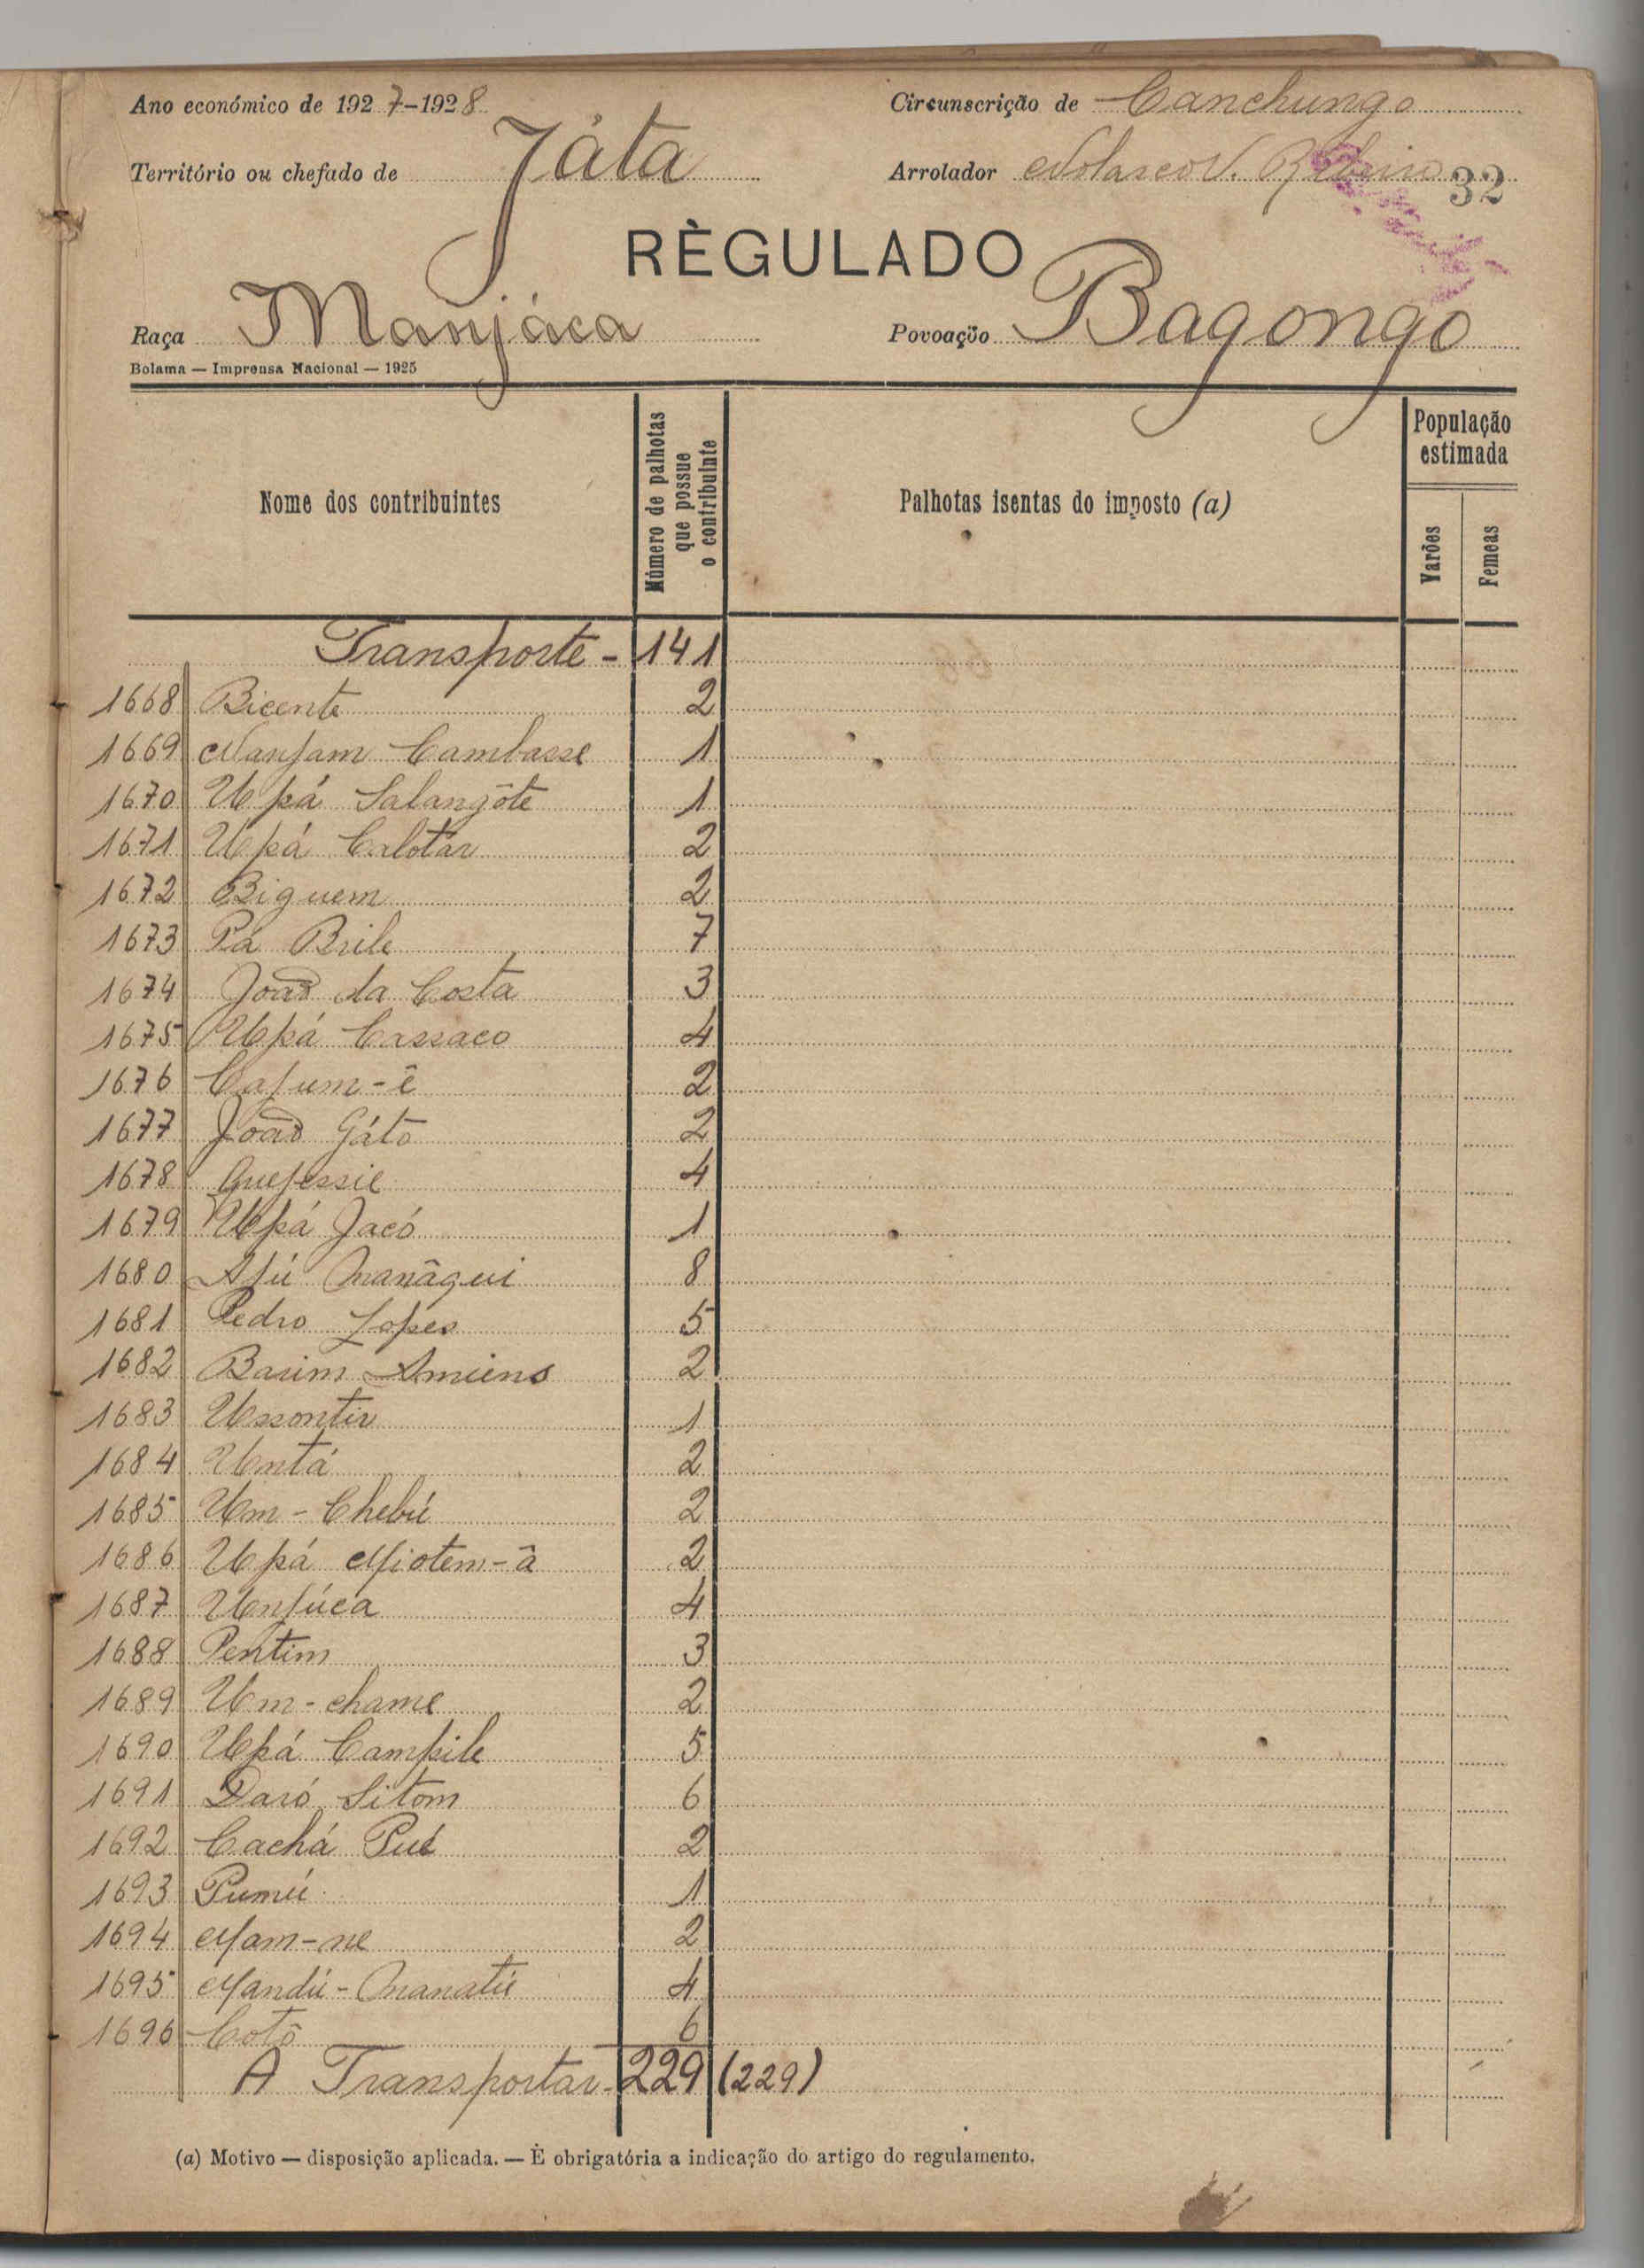 Ano económico de 1927-1928
Circunscrição de Canchungo
Território ou chefado de Játa
Arrolador Nolasco V. Ribeiro 32
RÈGULADO
Raça Manjáca
Povoação Bagongo
Bolama — Imprensa Nacional — 1925
Nome dos contribuintes
Número de palhotas que possue o contribuinte
Palhotas isentas do imposto (a)
População estimada
Varões
Femeas
Transporte - 141
1668 Bicente 2
1669 Nanjam Cambasse 1
1670 Upá Salangôte 1
1671 Upá Calotar 2
1672 Biguem 2
1673 Pá Brile 7
1674 João da Costa 3
1675 Upá Cassaco 4
1676 Cajum-ê 2
1677 João Gáto 2
1678 Quejessie 4
1679 Upá Jacó 1
1680 Ajú Manâqui 8
1681 Pedro Lopes 5
1682 Barim Amiens 2
1683 Ussontir 1
1684 Untá 2
1685 Um-Chebú 2
1686 Upá Miotem-â 2
1687 Unjúca 4
1688 Pentim 3
1689 Um-chame 2
1690 Upá Campile 5
1691 Daró Sitom 6
1692 Cachá Pué 2
1693 Pumú 1
1694 Mam-ne 2
1695 Mandú-Manatú 4
1696 Cotô 6
A Transportar - 229 (229)
(a) Motivo — disposição aplicada. — È obrigatória a indicação do artigo do regulamento.